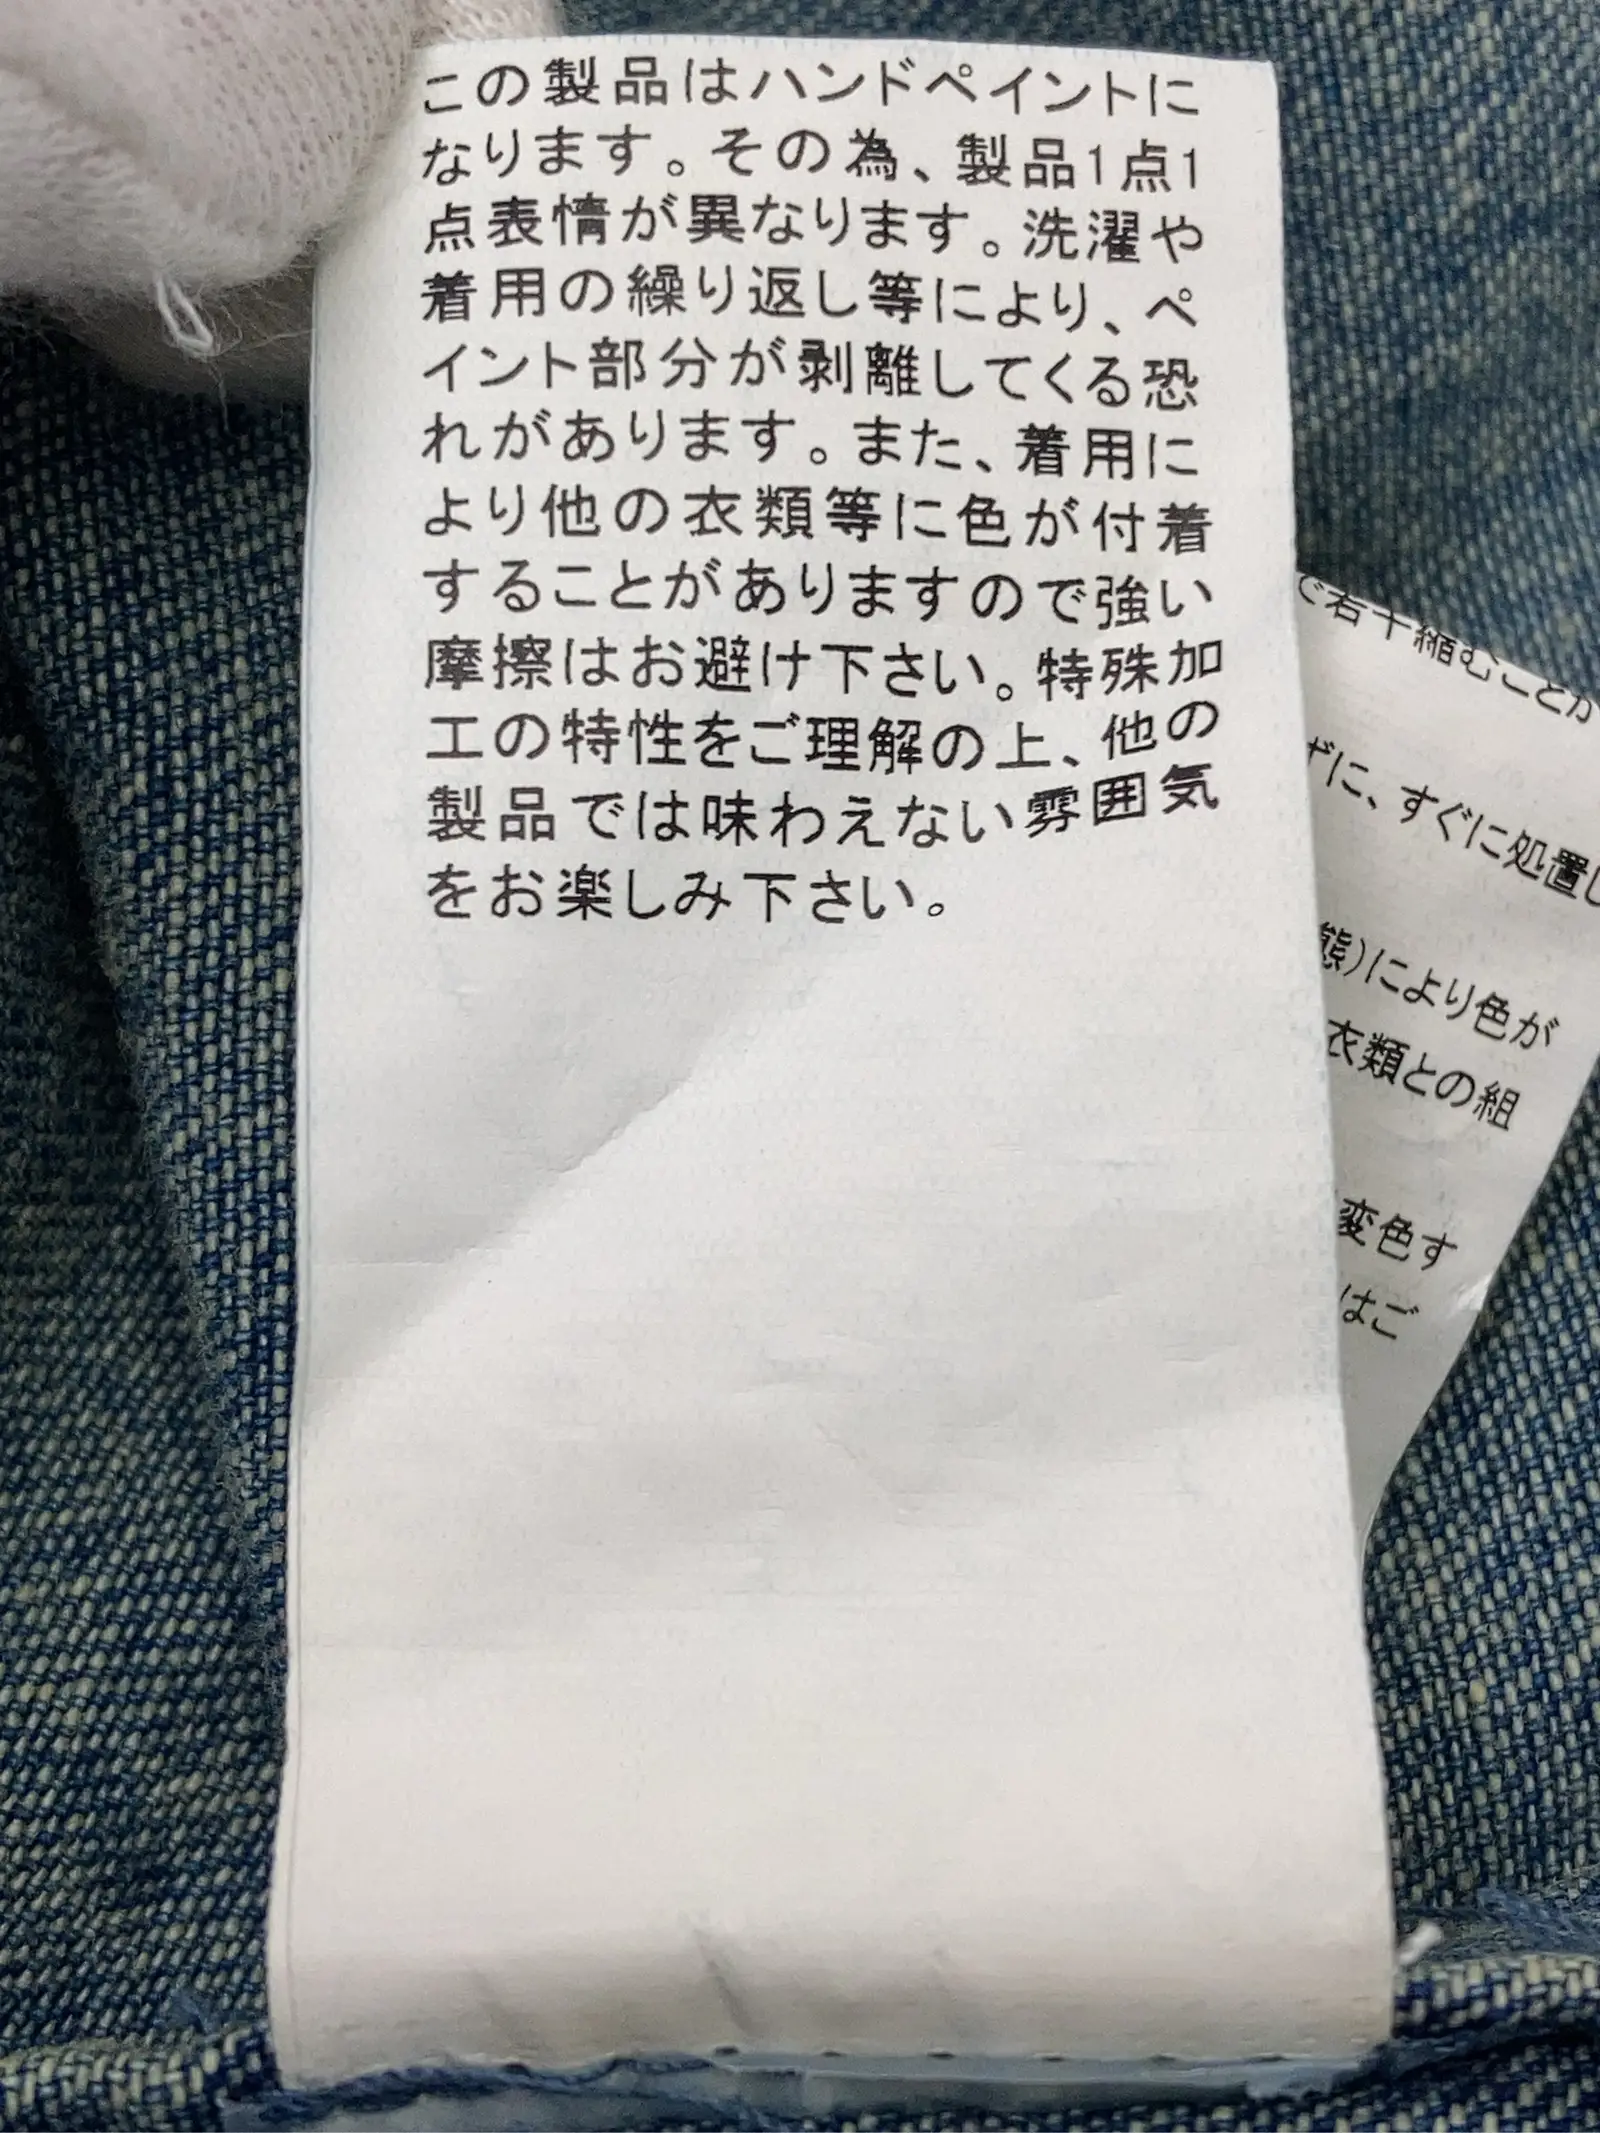 この製品はハンドペイントに
なります。その為、製品1点1
点表情が異なります。洗濯や
着用の繰り返し等により、ペ
イント部分が剥離してくる恐
れがあります。また、着用に
より他の衣類等に色が付着
することがありますので強い
摩擦はお避け下さい。特殊加
工の特性をご理解の上、他の
製品では味わえない雰囲気
をお楽しみ下さい。
で若干縮むことが
ずに、すぐに処置し
態)により色が
衣類との組
変色す
はご